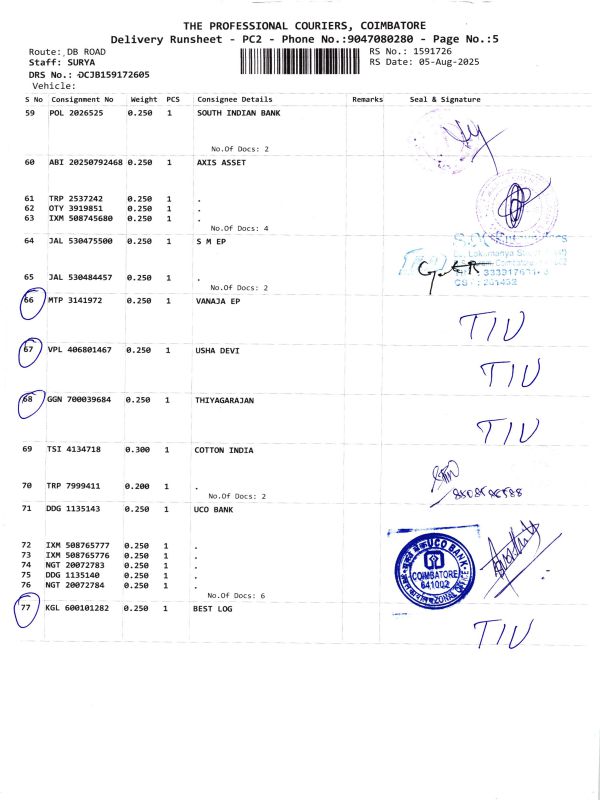 THE PROFESSIONAL COURIERS, COIMBATORE
Delivery Runsheet - PC2 - Phone No.:9047080280 - Page No.:5
Route: DB ROAD RS No.: 1591726
Staff: SURYA RS Date: 05-Aug-2025
DRS No.: DCJB159172605
Vehicle:
S No Consignment No Weight PCS Consignee Details Remarks Seal & Signature
59 POL 2026525 0.250 1 SOUTH INDIAN BANK
No.Of Docs: 2
60 ABI 20250792468 0.250 1 AXIS ASSET
61 TRP 2537242 0.250 1 .
62 OTY 3919851 0.250 1 .
63 IXM 508745680 0.250 1 .
No.Of Docs: 4
64 JAL 530475500 0.250 1 S M EP
65 JAL 530484457 0.250 1 .
No.Of Docs: 2
66 MTP 3141972 0.250 1 VANAJA EP
TIV
67 VPL 406801467 0.250 1 USHA DEVI
TIV
68 GGN 700039684 0.250 1 THIYAGARAJAN
TIV
69 TSI 4134718 0.300 1 COTTON INDIA
70 TRP 7999411 0.200 1 .
No.Of Docs: 2
71 DDG 1135143 0.250 1 UCO BANK
72 IXM 508765777 0.250 1 .
73 IXM 508765776 0.250 1 .
74 NGT 20072783 0.250 1 .
75 DDG 1135140 0.250 1 .
76 NGT 20072784 0.250 1 .
No.Of Docs: 6
UCO BANK
COIMBATORE
641002
ZONAL OFFICE
77 KGL 600101282 0.250 1 BEST LOG
TIV